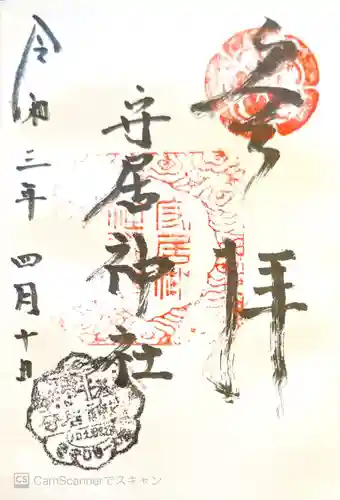 参拝
守居神社
令和三年四月十日
CS CamScannerでスキャン